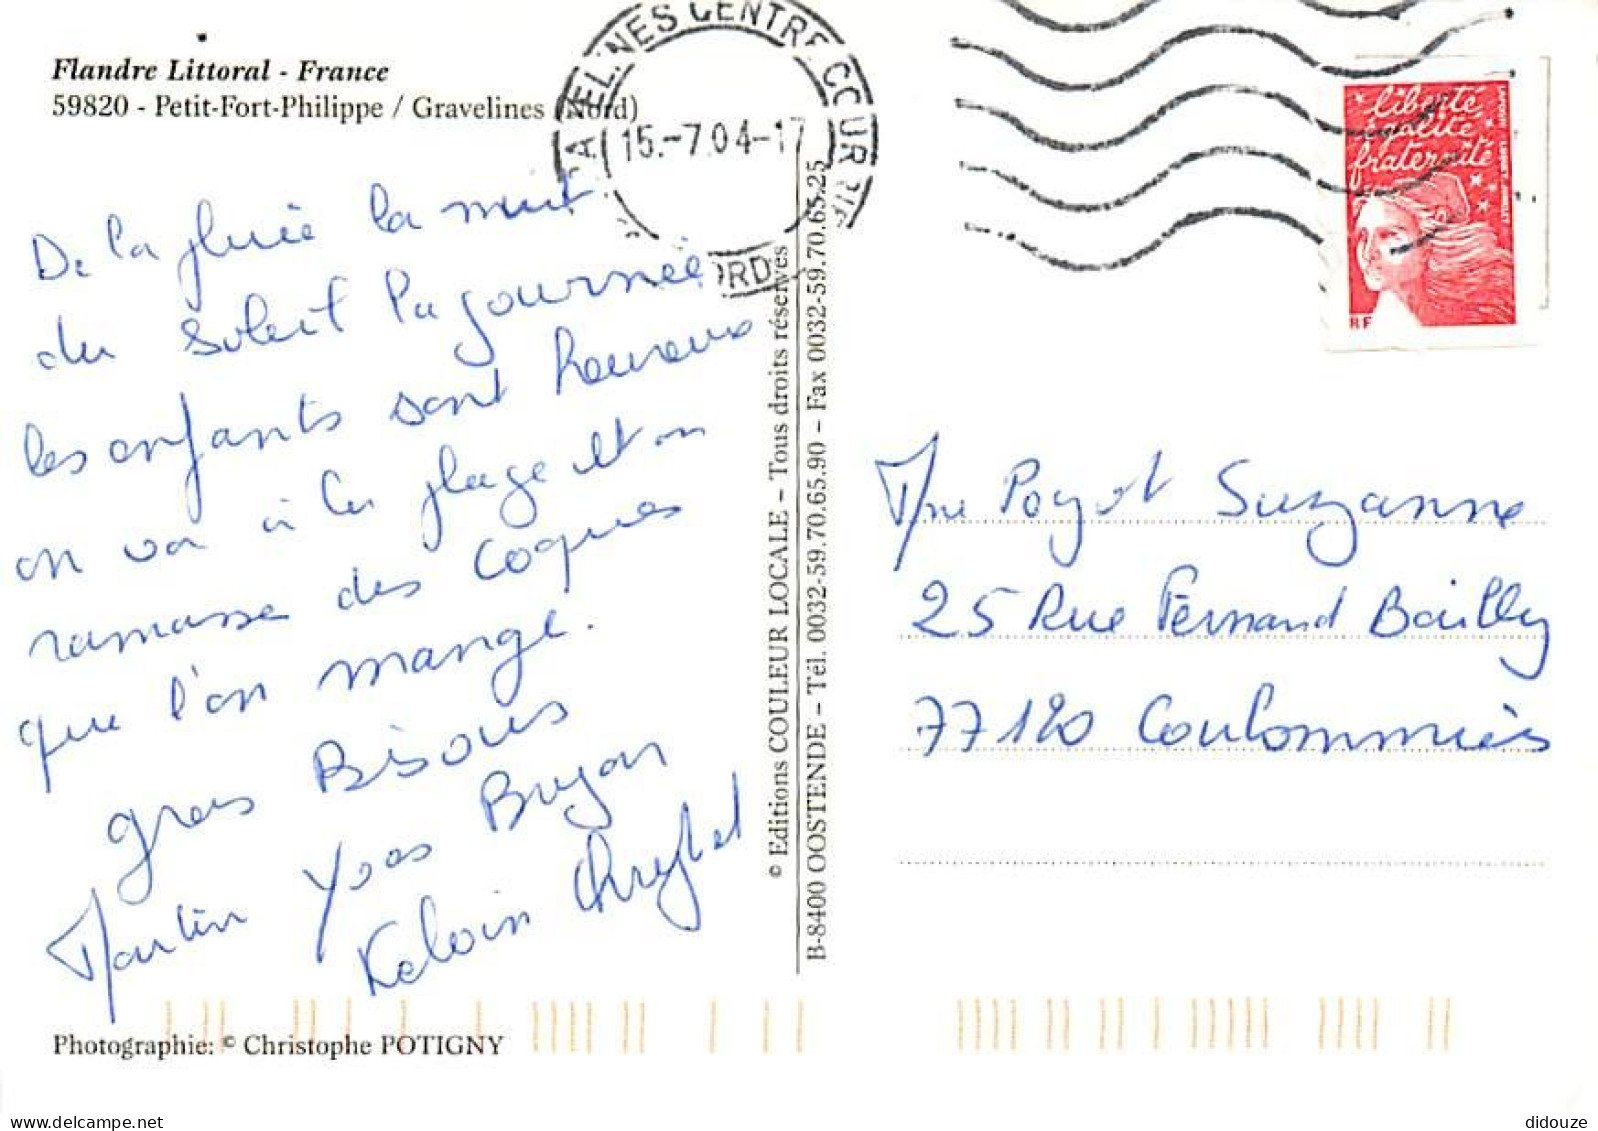 Flandre Littoral - France
59820 - Petit-Fort-Philippe / Gravelines (Nord)
GRAVELINES CENTRE COURRIER
15.-7.04-17
NORD
liberté
égalité
fraternité
RF
De la pluie la nuit
du soleil la journée
les enfants sont heureux
on va à la plage et on
ramasse des coques
que l'on mange.
gros Bisous
Yves Bryan
Kelvin Chrystel
© Editions COULEUR LOCALE – Tous droits réservés
B-8400 OOSTENDE – Tél. 0032-59.70.65.90 – Fax 0032-59.70.65.25
Mme Poyot Suzanne
25 Rue Fernand Bailly
77120 Coulommiès
Photographie: © Christophe POTIGNY
didouze